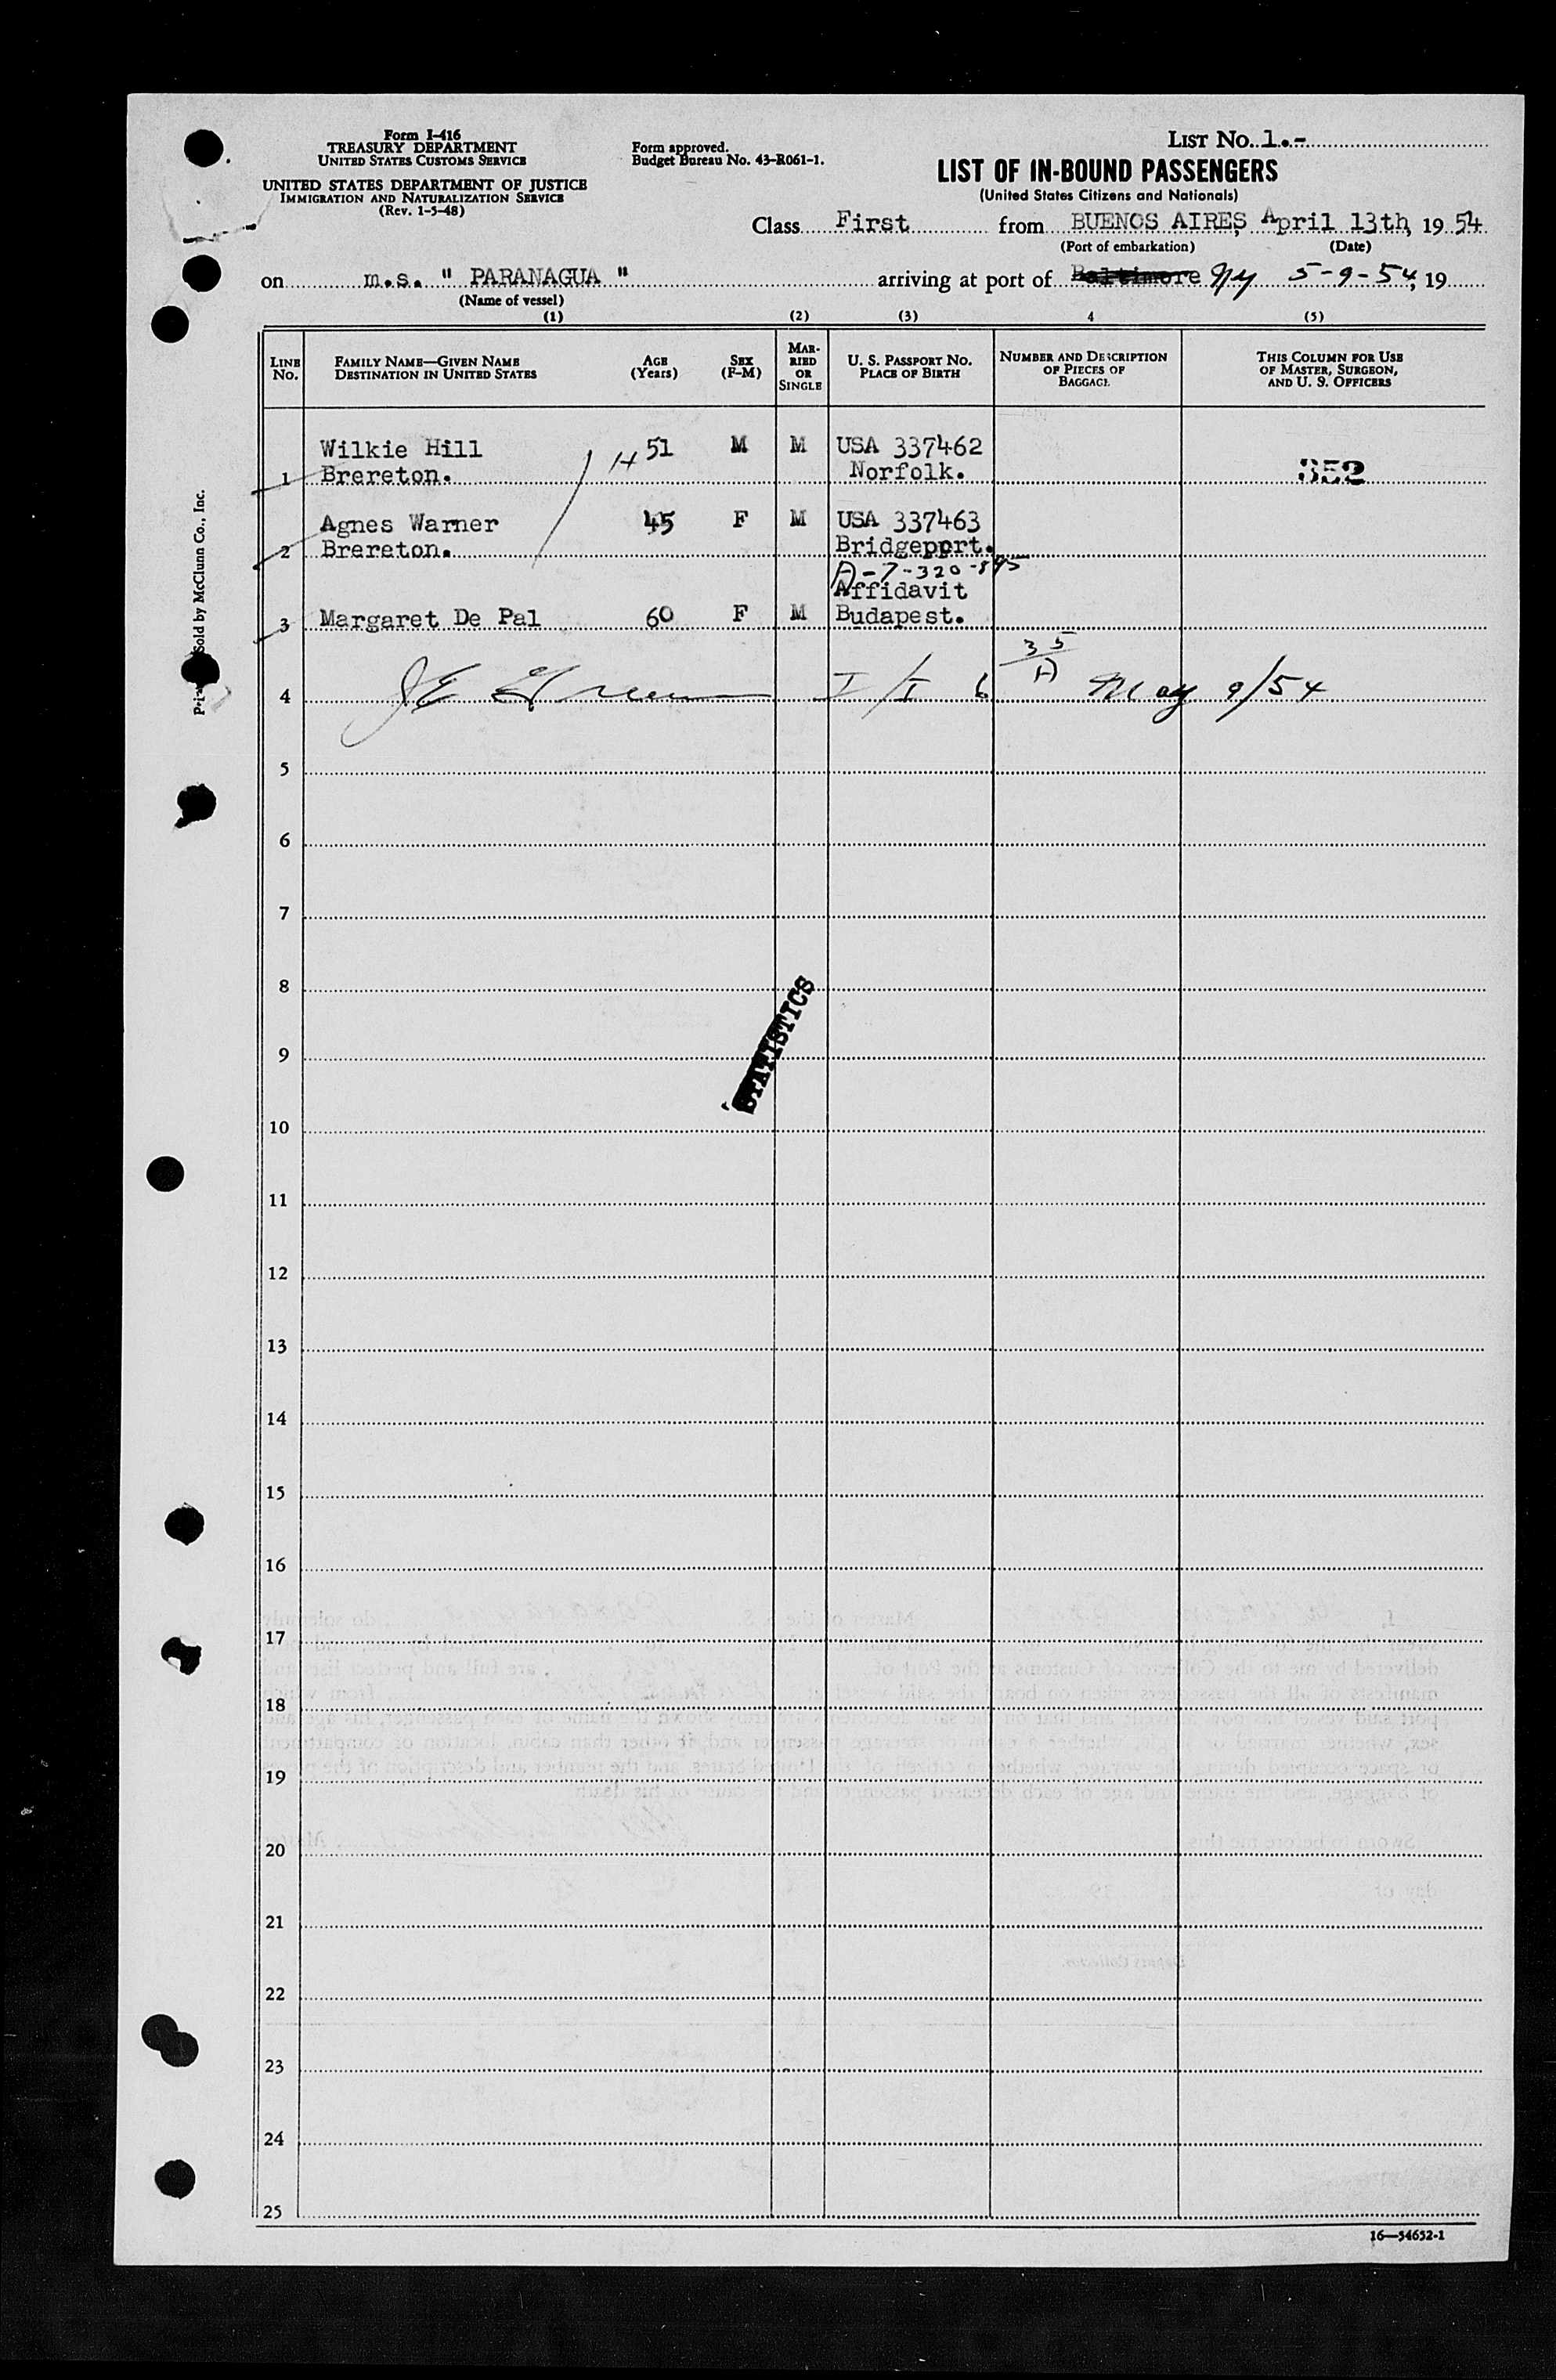 Form I-416
TREASURY DEPARTMENT
UNITED STATES CUSTOMS SERVICE
UNITED STATES DEPARTMENT OF JUSTICE
IMMIGRATION AND NATURALIZATION SERVICE
(Rev. 1-5-48)
Form approved.
Budget Bureau No. 43-R061-1.
LIST No. 1.-
LIST OF IN-BOUND PASSENGERS
(United States Citizens and Nationals)
Class First from BUENOS AIRES, April 13th, 19 54
(Port of embarkation) (Date)
on m.s. " PARANAGUA " arriving at port of Baltimore NY 5-9-54, 19
(Name of vessel)
(1) (2) (3) 4 (5)
LINE No. FAMILY NAME—GIVEN NAME DESTINATION IN UNITED STATES AGE (Years) SEX (F-M) MARRIED OR SINGLE U. S. PASSPORT NO. PLACE OF BIRTH NUMBER AND DESCRIPTION OF PIECES OF BAGGAGE THIS COLUMN FOR USE OF MASTER, SURGEON, AND U. S. OFFICERS
Wilkie Hill 51 M M USA 337462
1 Brereton. Norfolk. 352
Agnes Warner 45 F M USA 337463
2 Brereton. Bridgeport.
Affidavit
3 Margaret De Pal 60 F M Budapest.
35
4 May 9/54
5
6
7
8
STATISTICS
9
10
11
12
13
14
15
16
17
18
19
20
21
22
23
24
25
16—54652-1
Sold by McClunn Co., Inc.